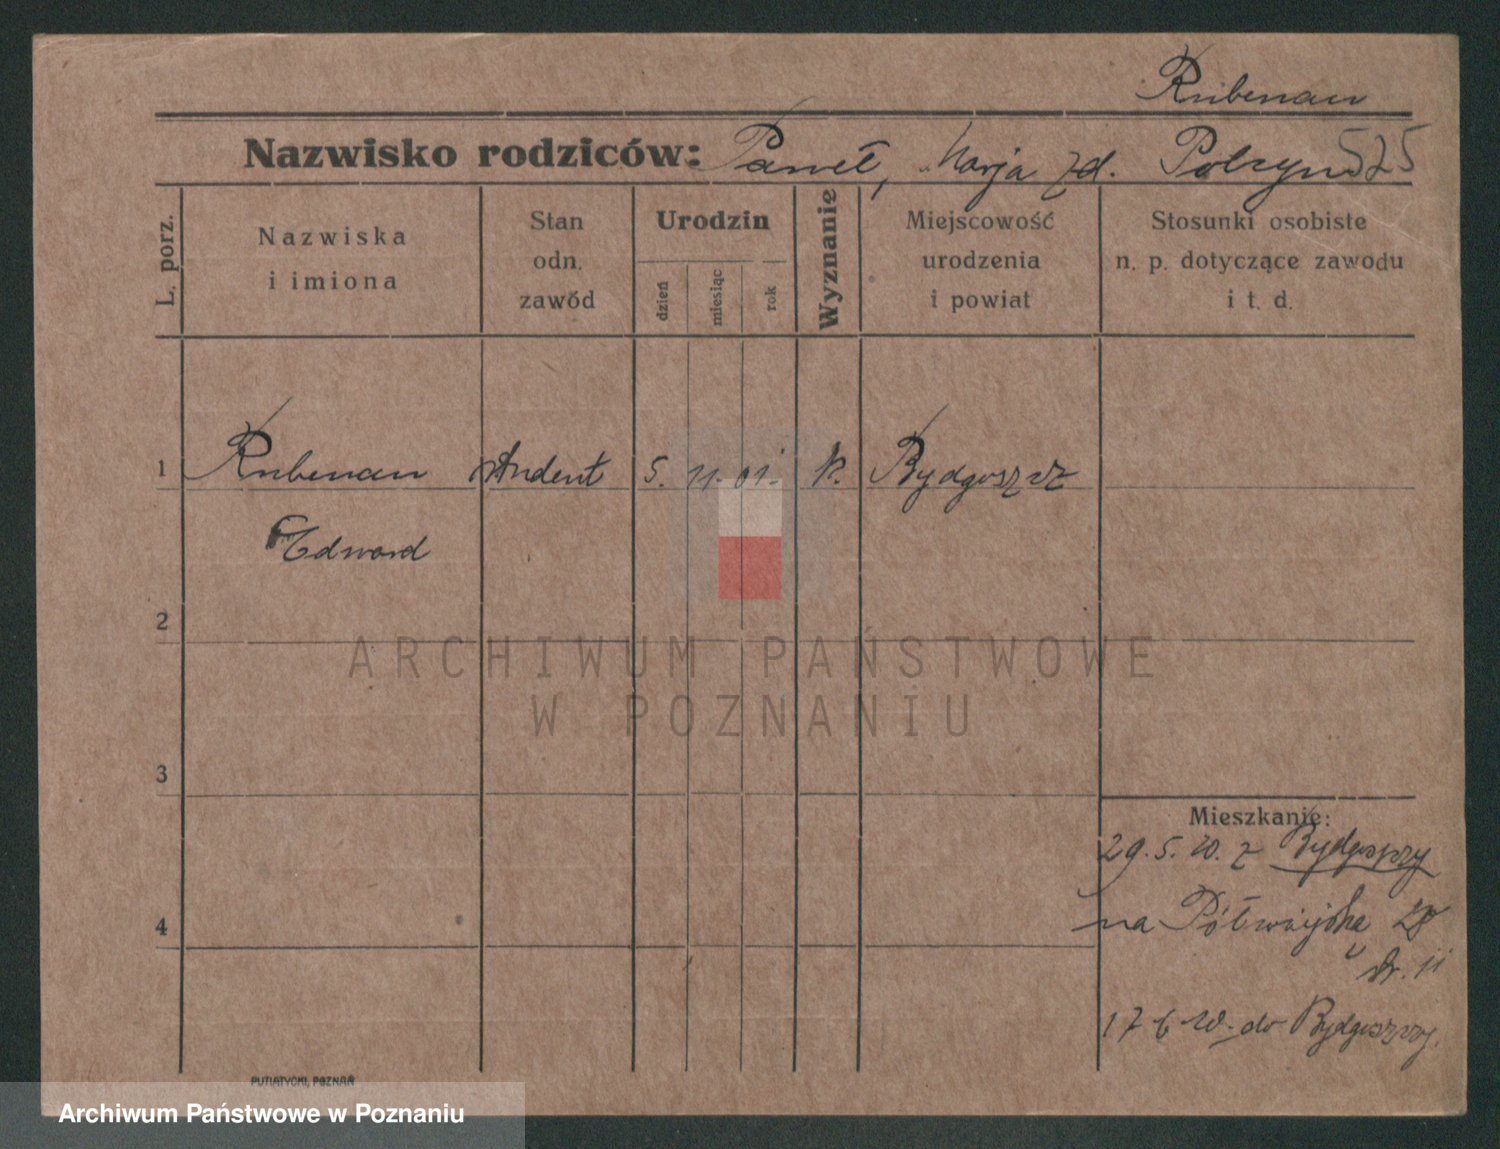 Rubenau
Nazwisko rodziców: Paweł, Marja zd. Polzyn 525
L. porz.
Nazwiska
i imiona
Stan
odn.
zawód
Urodzin
dzień
miesiąc
rok
Wyznanie
Miejscowość
urodzenia
i powiat
Stosunki osobiste
n. p. dotyczące zawodu
i t. d.
1 Rubenau student 5. 11. 01. k. Bydgoszcz
Edward
2
3
4
Mieszkanie:
29. 5. 20. z Bydgoszczy
na Półwiejska 28
17 6 20. do Bydgoszczy.
PUTIATYCKI, POZNAŃ
ARCHIWUM PAŃSTWOWE
W POZNANIU
Archiwum Państwowe w Poznaniu